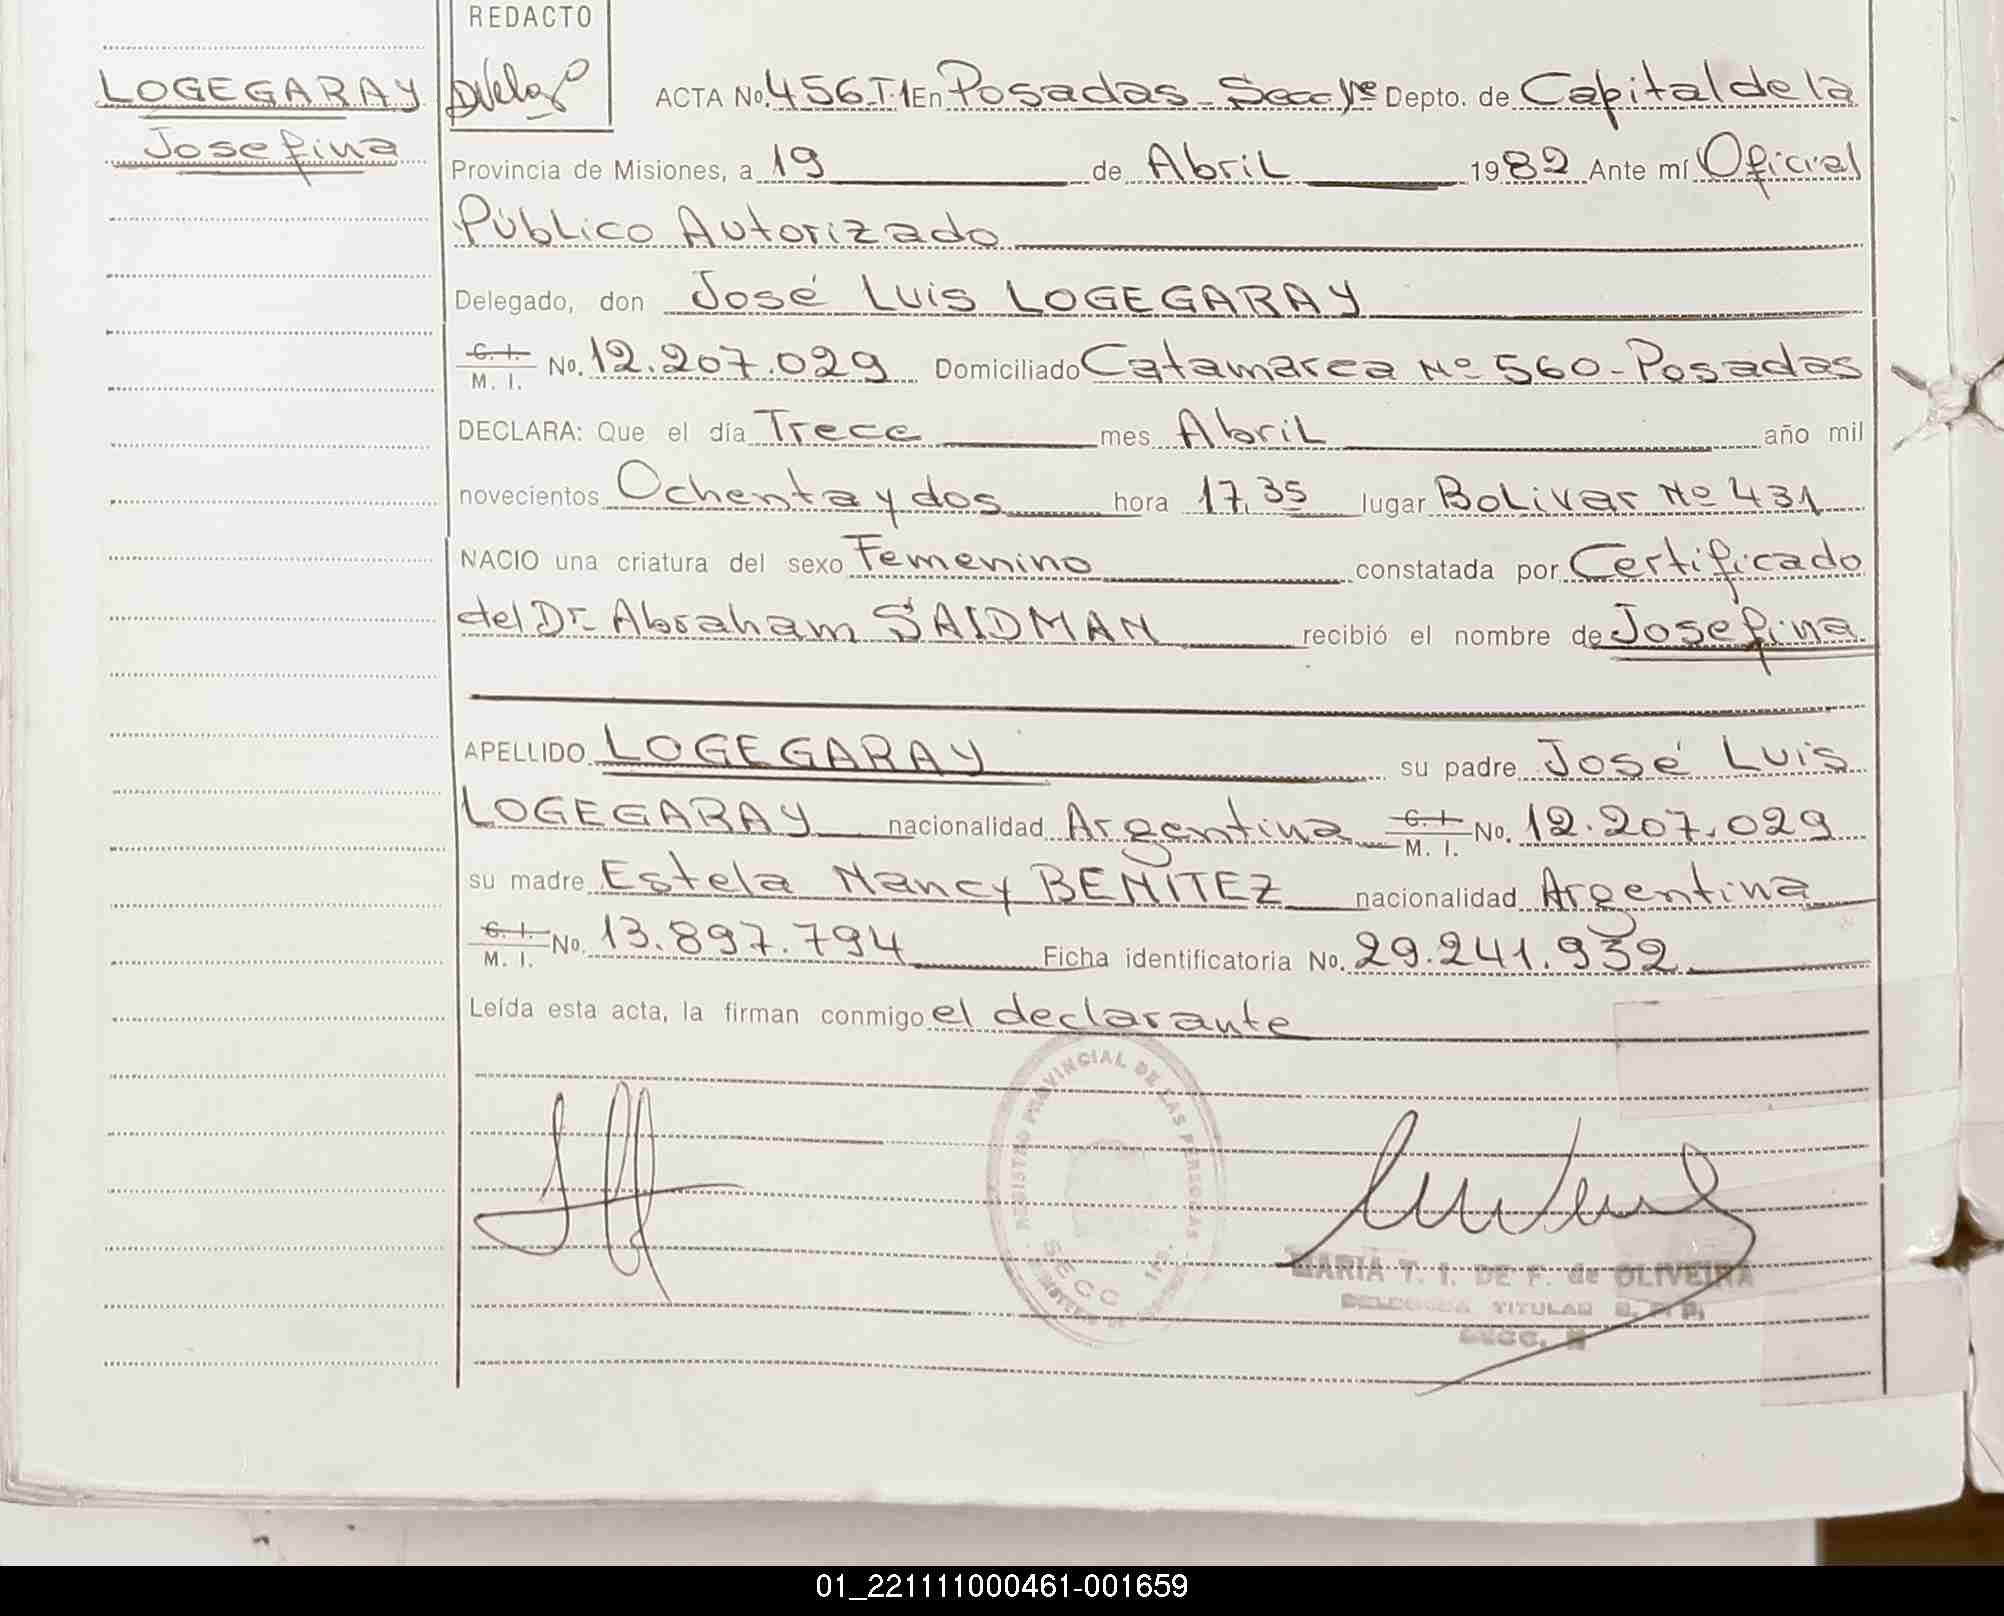 REDACTO
LOGEGARAY
Josefina
ACTA No. 456-T.1 En Posadas - Secc 1ra Depto. de Capital de la
Provincia de Misiones, a 19 de Abril 1982 Ante mí Oficial
Público Autorizado
Delegado, don José Luis LOGEGARAY
C. I.
M. I. No. 12.207.029 Domiciliado Catamarca Nº 560 - Posadas
DECLARA: Que el día Trece mes Abril año mil
novecientos Ochenta y dos hora 17,35 lugar Bolivar Nº 431
NACIO una criatura del sexo Femenino constatada por Certificado
del Dr. Abraham SAIDMAN recibió el nombre de Josefina
APELLIDO LOGEGARAY su padre José Luis
LOGEGARAY nacionalidad Argentina C. I. No. 12.207.029
M. I.
su madre Estela Nancy BENITEZ nacionalidad Argentina
C. I.
M. I. No. 13.897.794 Ficha identificatoria No. 29.241.932
Leída esta acta, la firman conmigo el declarante
REGISTRO PROVINCIAL DE LAS PERSONAS
SECC
MARIA T. I. DE F. de OLIVEIRA
TITULAR
SECC.
01_221111000461-001659